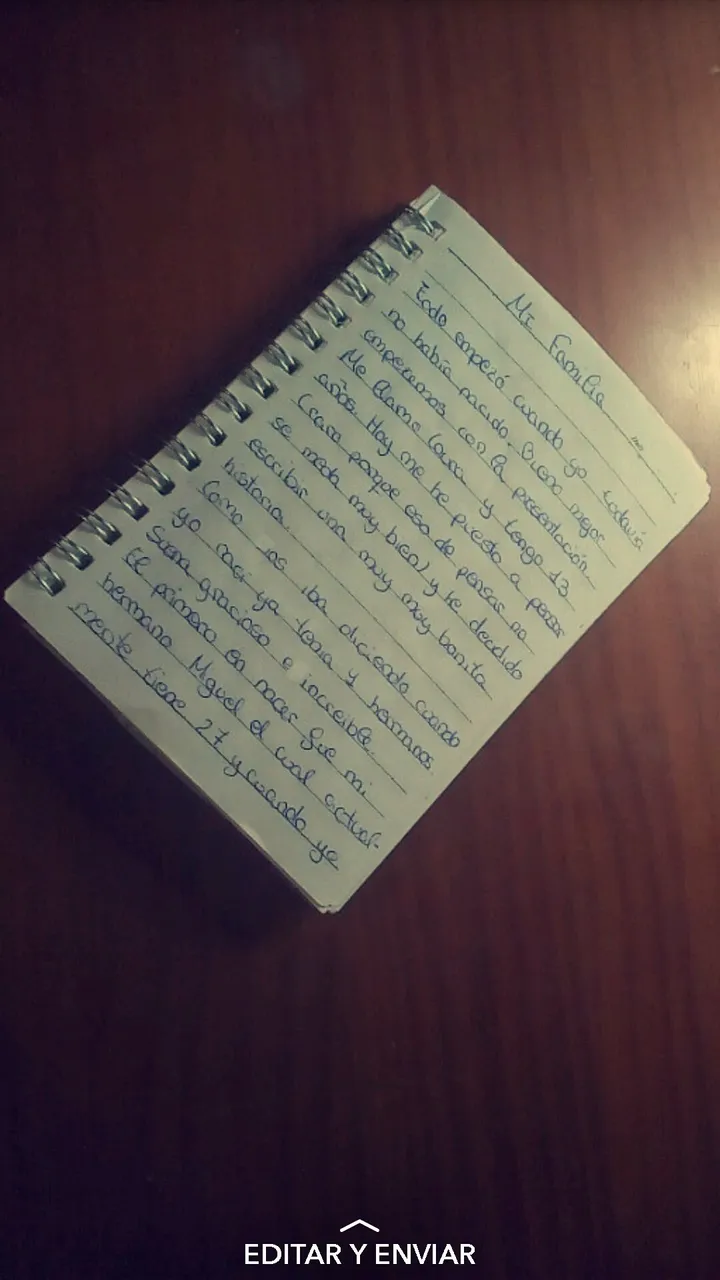 Mi Familia
Todo empezó cuando yo todavía
no había nacido. Bueno mejor
empezamos con la presentación
Me llamo Laura y tengo 13
años. Hoy me he puesto a pensar
(rara porque eso de pensar no
se meda muy bien) y he decidido
escribir una muy muy bonita
historia.
Como os iba diciendo cuando
yo nací ya tenía 4 hermanos.
Suena gracioso e increíble.
El primero en nacer fue mi
hermano Miguel el cual actual-
mente tiene 27 y cuando yo
EDITAR Y ENVIAR